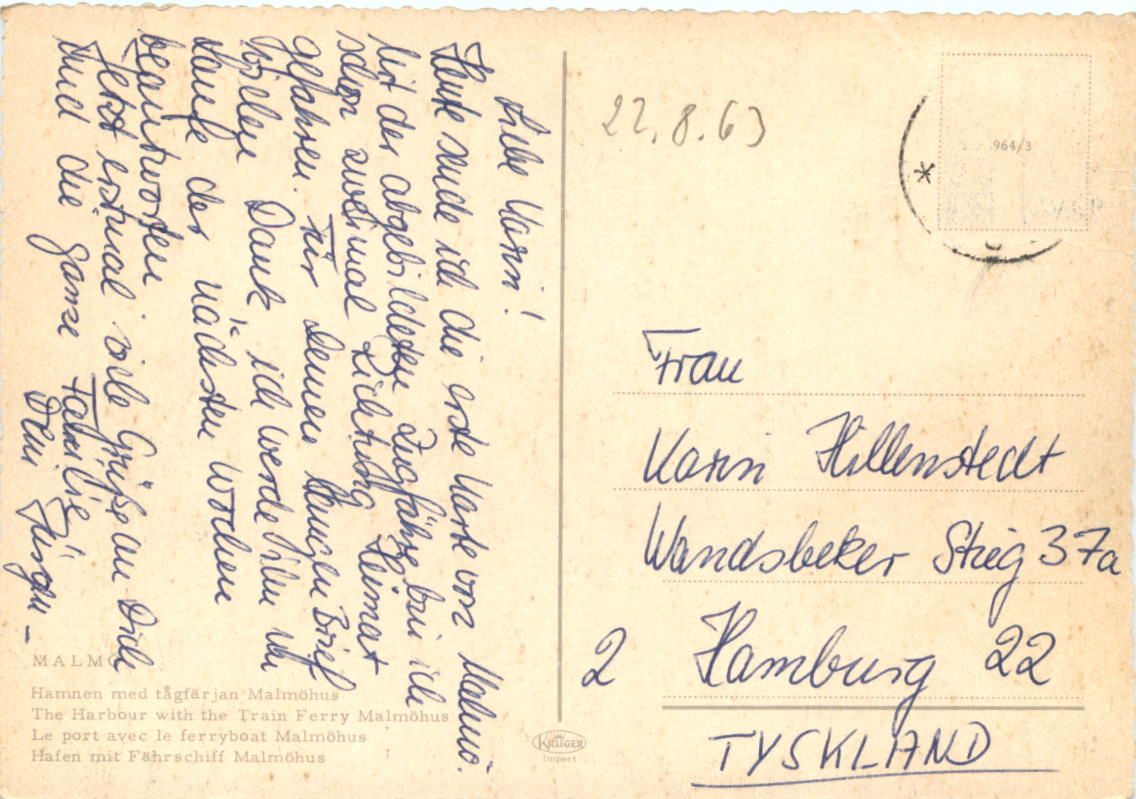 Liebe Karin!
Heute sende ich die erste Karte von Malmö.
Mit der abgebildeten Zugfähre bin ich
schon zweimal Richtung Heimat
gefahren. Für Deinen langen Brief
vielen Dank, ich werde ihn im
Laufe der nächsten Wochen
beantworten
Jetzt erstmal viele Grüße an Dich
und die ganze Familie
Dein Jürgen –
MALMÖ
Hamnen med tågfärjan Malmöhus
The Harbour with the Train Ferry Malmöhus
Le port avec le ferryboat Malmöhus
Hafen mit Fährschiff Malmöhus
KRÜGER
Import
22.8.63
964/3
Frau
Karin Hillenstedt
Wandsbeker Stieg 37a
2 Hamburg 22
TYSKLAND